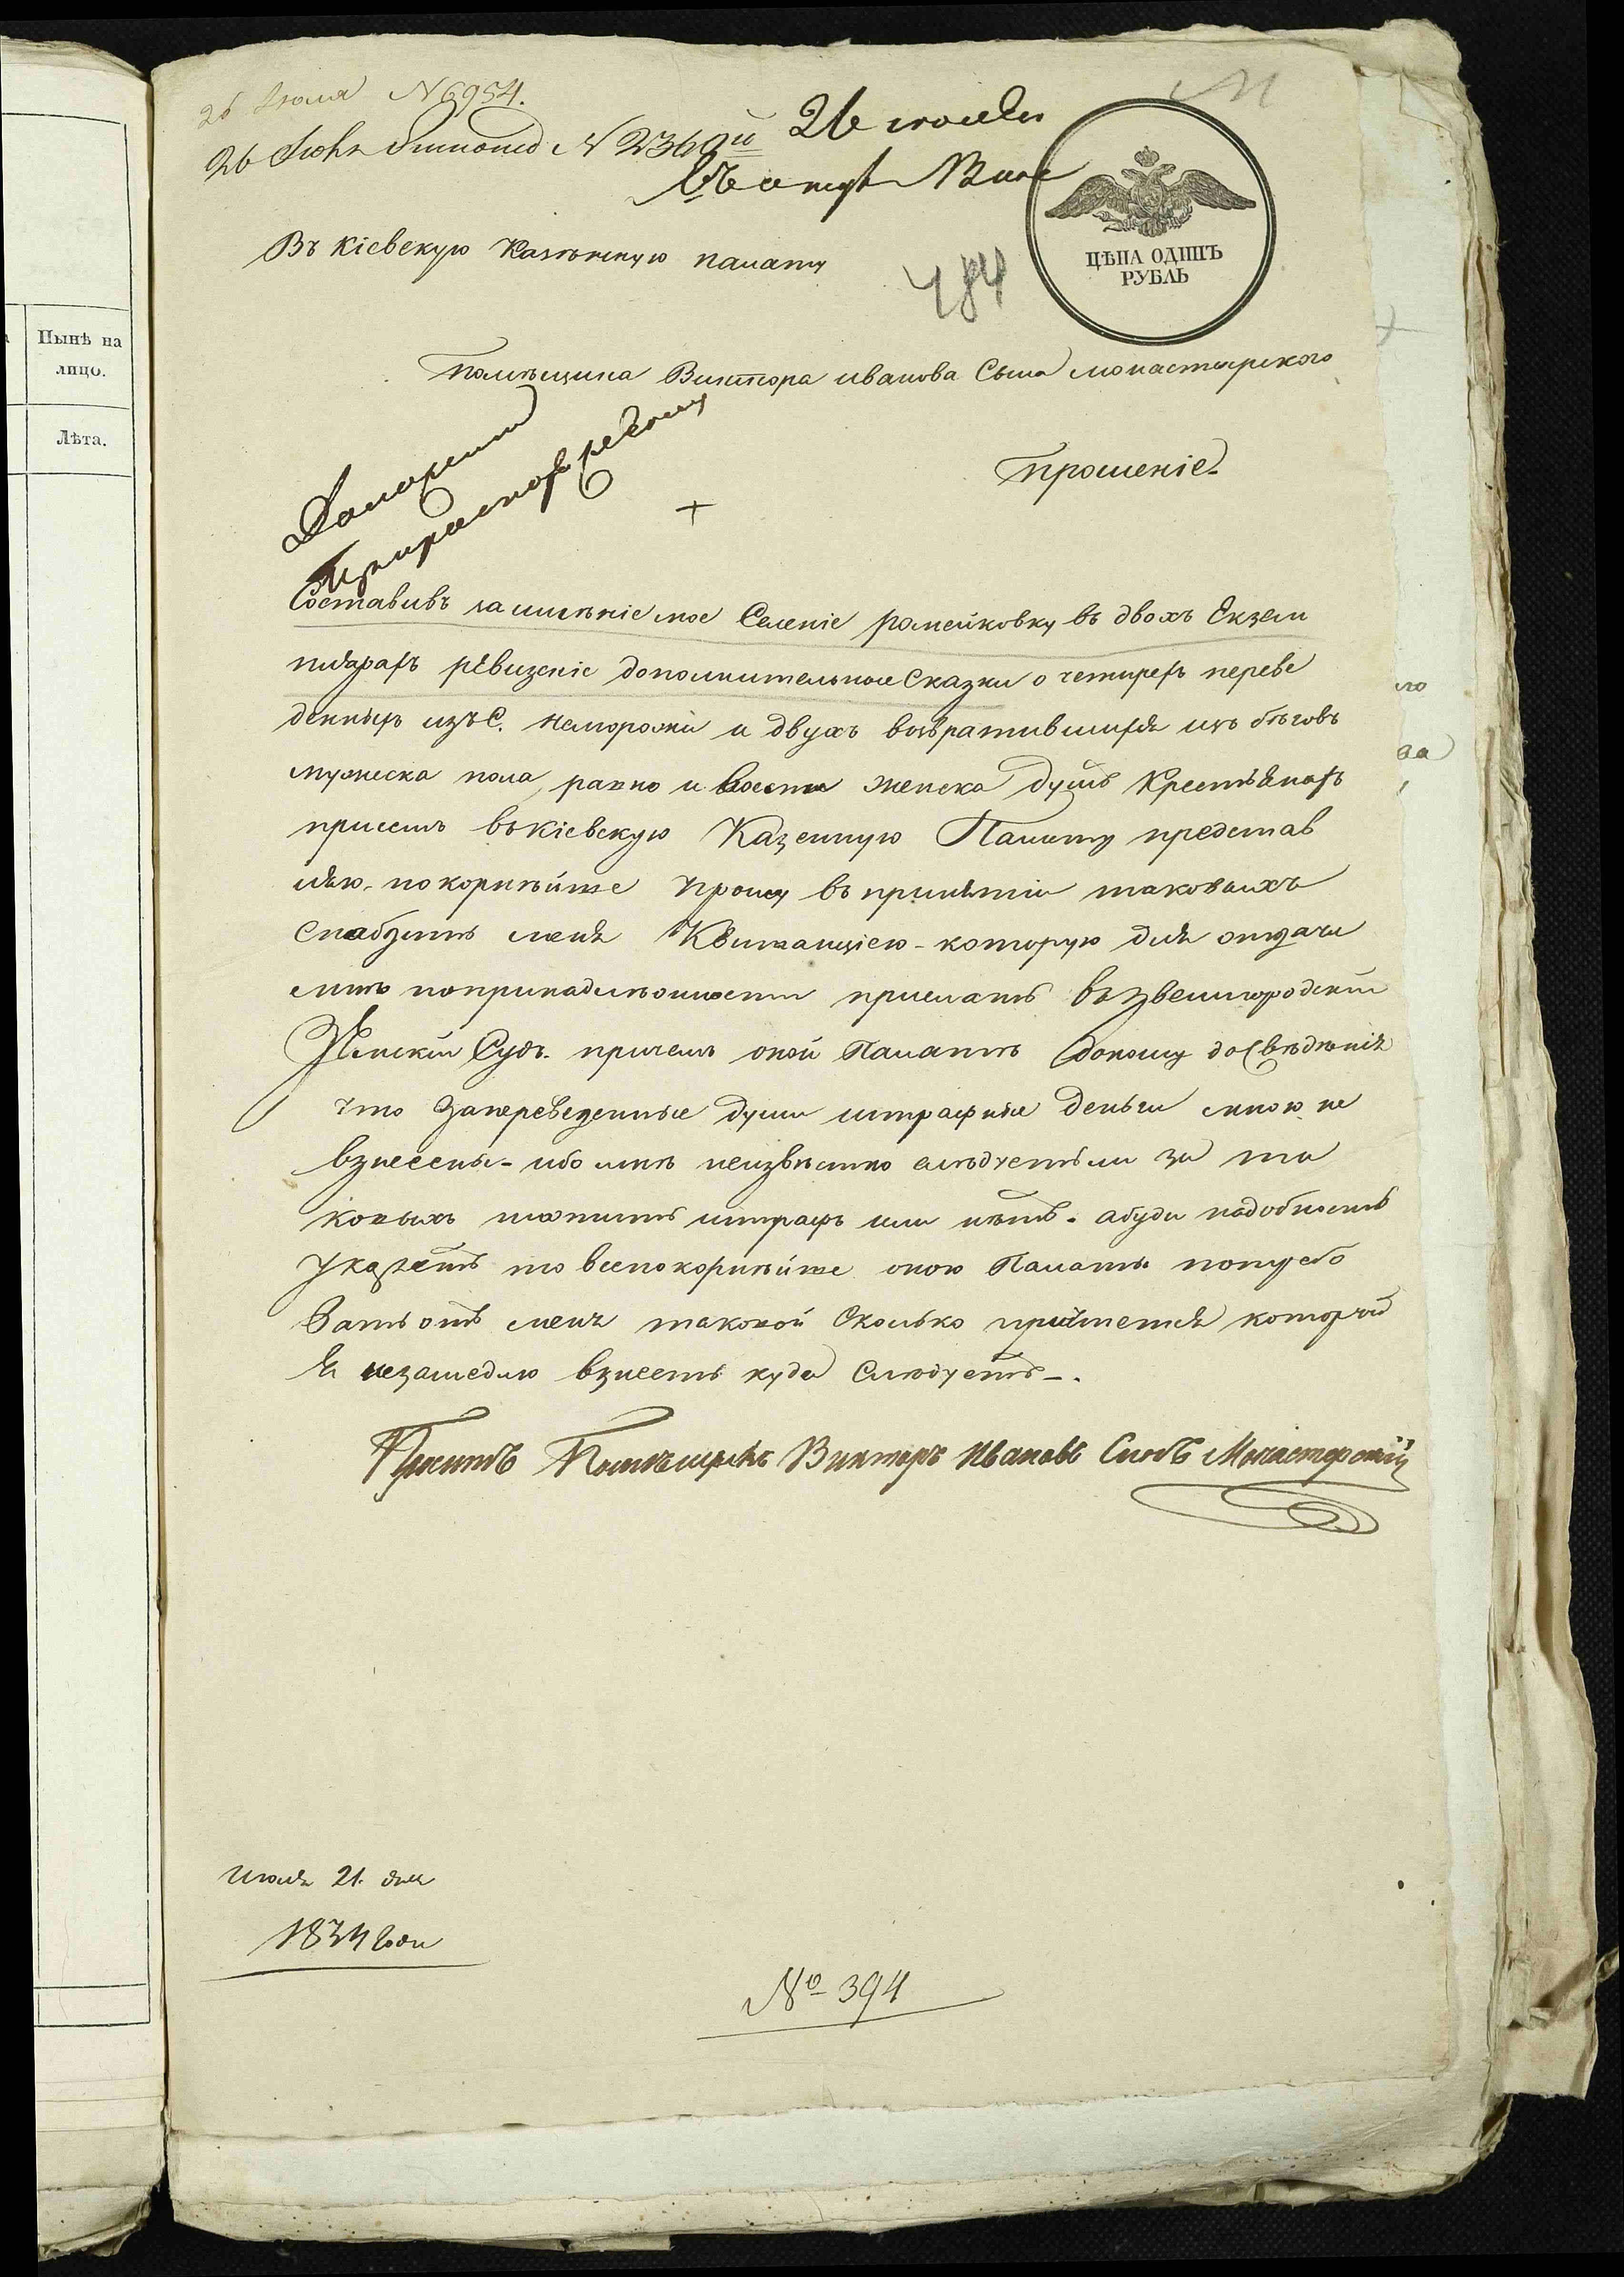 26 Июля N 6954.
26 Июля N 2360й
26 июля
Въ Кіевскую Казенную палату
484
ЦѢНА ОДИНЪ
РУБЛЬ
Помѣщика Виктора иванова Сына монастырского
Прошеніе
Составивъ на имѣніе мое Селеніе ромейковку въ двохъ Екзем
плярахъ рѣвизскіе дополнительные Сказки о четирехъ переве
денныхъ изъ С. Неморожи и двухъ возвратившихся изъ бѣговъ
мужеска пола, равно и женска душъ Крестьянахъ
присемъ въ кіевскую Казенную Палату представ
ляю. покорнѣйше прошу въ принятіи таковыхъ
снабдить меня Квитанціею - которую для отдачи
мнѣ попринадлѣжности прислать въ звенигородскій
Земскій Судъ. причемъ оной Палатѣ доношу до Свѣдѣнія
что заперевезенные души штрафные деньги мною не
взнесены - ибо мнѣ неизвѣстно слѣдуетъ ли за та
ковыхъ платить штрафъ или нѣтъ. абуди надобность
укажетъ то всепокорнѣйше оною Палаты потребо
вать отъ меня таковой Сколько прійметься которой
Я незамедлю взнесть куда Слюдуетъ -.
Проситъ Помѣщикъ Викторъ Ивановъ Синъ Монастерскій
Июля 21. дня
1834 Года
№ 394
Ныне на
лицо.
Лѣта.